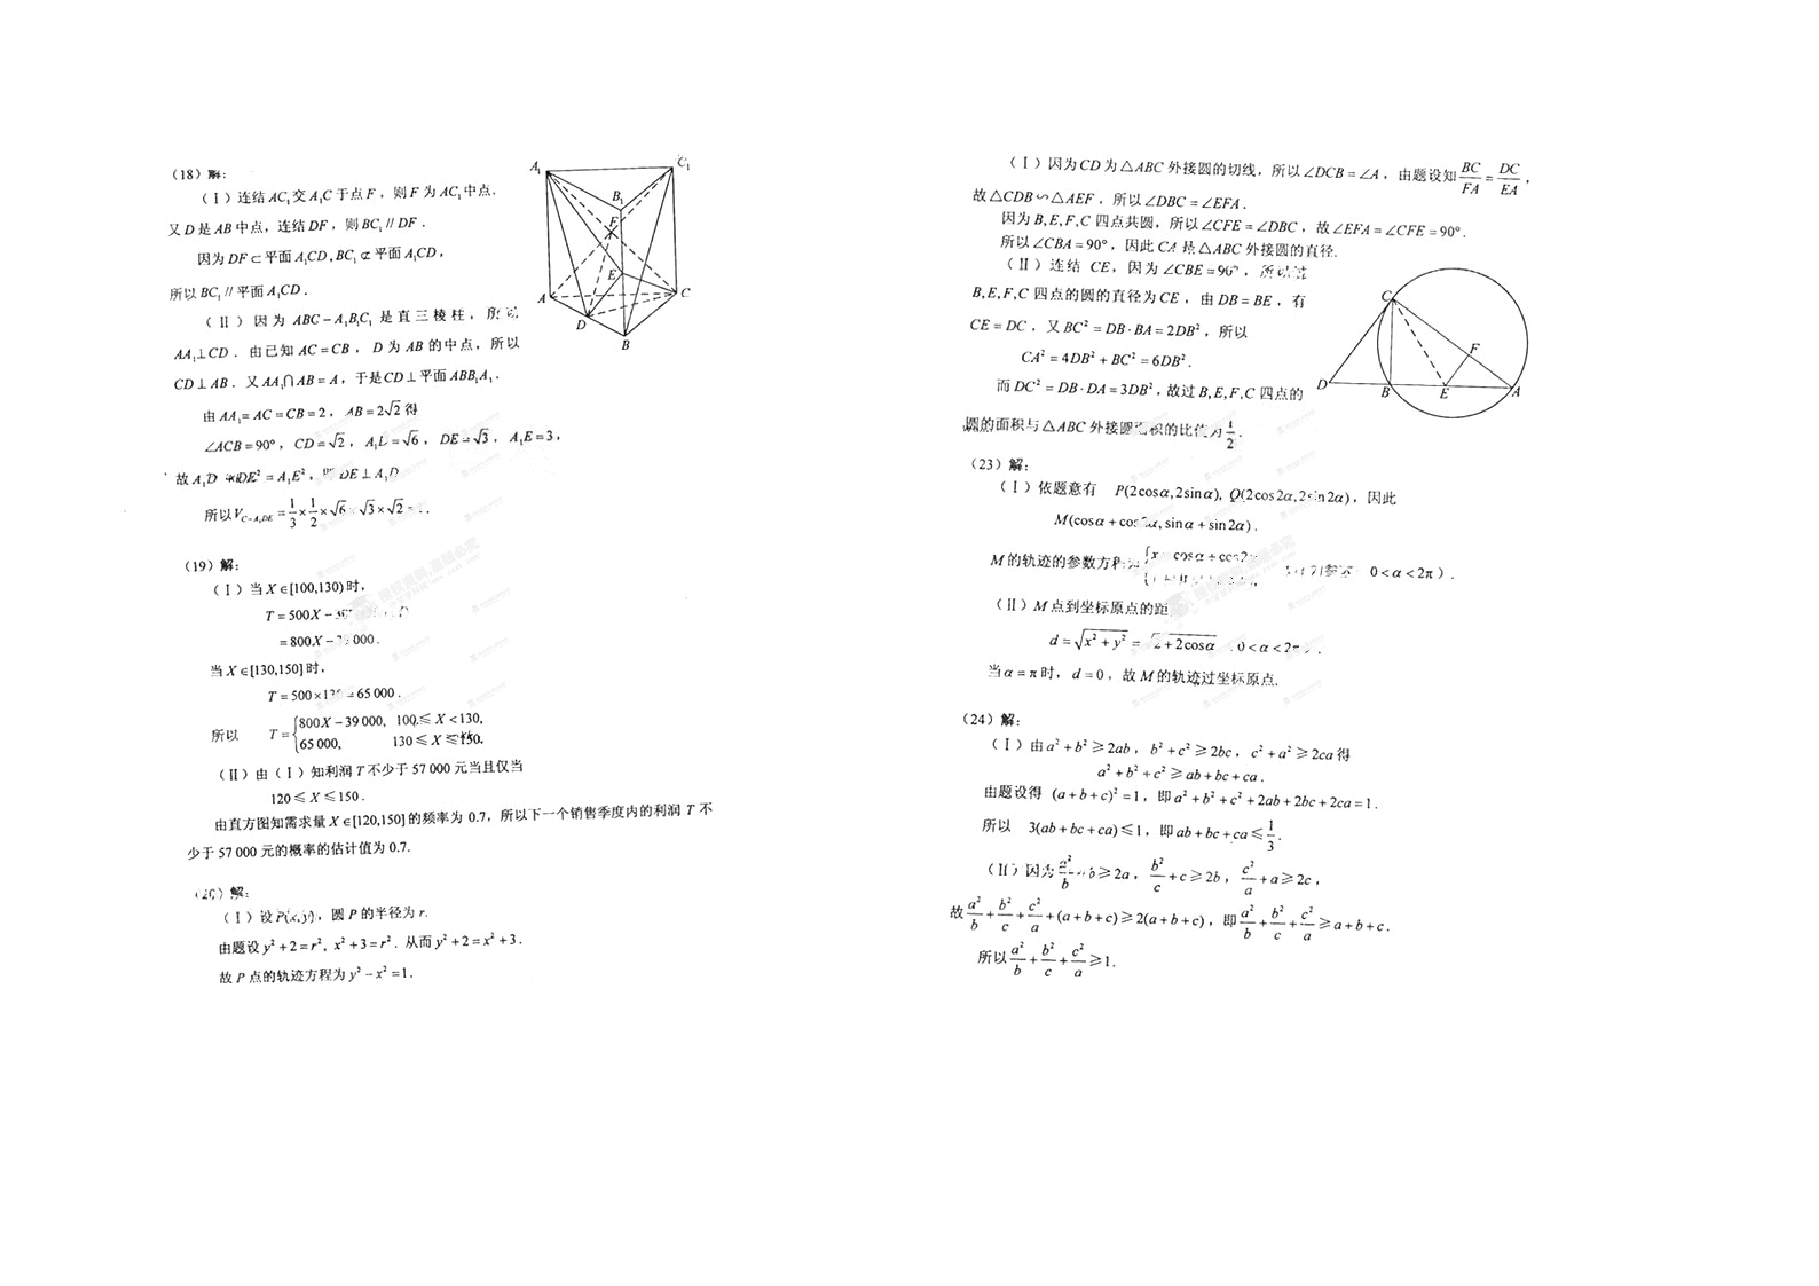 (18) 解:
(Ⅰ) 连结 AC₁ 交 A₁C 于点 F，则 F 为 AC₁ 中点.
又 D 是 AB 中点，连结 DF，则 BC₁ // DF.
因为 DF ⊂ 平面 A₁CD, BC₁ ⊄ 平面 A₁CD,
所以 BC₁ // 平面 A₁CD.
(Ⅱ) 因为 ABC－A₁B₁C₁ 是直三棱柱，所以
AA₁⊥CD. 由已知 AC＝CB, D 为 AB 的中点，所以
CD⊥AB. 又 AA₁∩AB＝A, 于是 CD⊥平面 ABB₁A₁.
由 AA₁＝AC＝CB＝2, AB＝2√2 得
∠ACB＝90°, CD＝√2, A₁D＝√6, DE＝√3, A₁E＝3,
故 A₁D²+DE²＝A₁E², DE⊥A₁D
所以 V_{C-A₁DE}＝1/3×1/2×√6×√3×√2
A₁ C₁ B₁ F E A C D B
(19) 解:
(Ⅰ) 当 X∈[100,130) 时,
T＝500X－
＝800X－ 000.
当 X∈[130,150] 时,
T＝500×130＝65 000.
所以 T＝{800X－39 000, 100≤X<130,
65 000, 130≤X≤150.
(Ⅱ) 由 (Ⅰ) 知利润 T 不少于 57 000 元当且仅当
120≤X≤150.
由直方图知需求量 X∈[120,150] 的频率为 0.7, 所以下一个销售季度内的利润 T 不
少于 57 000 元的概率的估计值为 0.7.
(20) 解:
(Ⅰ) 设 P(x,y), 圆 P 的半径为 r.
由题设 y²+2＝r², x²+3＝r². 从而 y²+2＝x²+3.
故 P 点的轨迹方程为 y²－x²＝1.
(Ⅰ) 因为 CD 为 △ABC 外接圆的切线，所以 ∠DCB＝∠A, 由题设知 BC/FA＝DC/EA,
故 △CDB∽△AEF, 所以 ∠DBC＝∠EFA.
因为 B,E,F,C 四点共圆，所以 ∠CFE＝∠DBC, 故 ∠EFA＝∠CFE＝90°.
所以 ∠CBA＝90°, 因此 CA 是 △ABC 外接圆的直径.
(Ⅱ) 连结 CE, 因为 ∠CBE＝90°, 所以过
B,E,F,C 四点的圆的直径为 CE, 由 DB＝BE, 有
CE＝DC, 又 BC²＝DB·BA＝2DB², 所以
CA²＝4DB²+BC²＝6DB².
而 DC²＝DB·DA＝3DB², 故过 B,E,F,C 四点的
圆的面积与 △ABC 外接圆面积的比值为 1/2.
C F D B E A
(23) 解:
(Ⅰ) 依题意有 P(2cosα,2sinα), Q(2cos2α,2sin2α), 因此
M(cosα+cos2α, sinα+sin2α).
M 的轨迹的参数方程为 {x＝cosα+cos2α, 0<α<2π).
(Ⅱ) M 点到坐标原点的距
d＝√(x²+y²)＝√(2+2cosα) (0<α<2π).
当 α＝π 时, d＝0, 故 M 的轨迹过坐标原点.
(24) 解:
(Ⅰ) 由 a²+b²≥2ab, b²+c²≥2bc, c²+a²≥2ca 得
a²+b²+c²≥ab+bc+ca.
由题设得 (a+b+c)²＝1, 即 a²+b²+c²+2ab+2bc+2ca＝1.
所以 3(ab+bc+ca)≤1, 即 ab+bc+ca≤1/3.
(Ⅱ) 因为 a²/b+b≥2a, b²/c+c≥2b, c²/a+a≥2c,
故 a²/b+b²/c+c²/a+(a+b+c)≥2(a+b+c), 即 a²/b+b²/c+c²/a≥a+b+c.
所以 a²/b+b²/c+c²/a≥1.